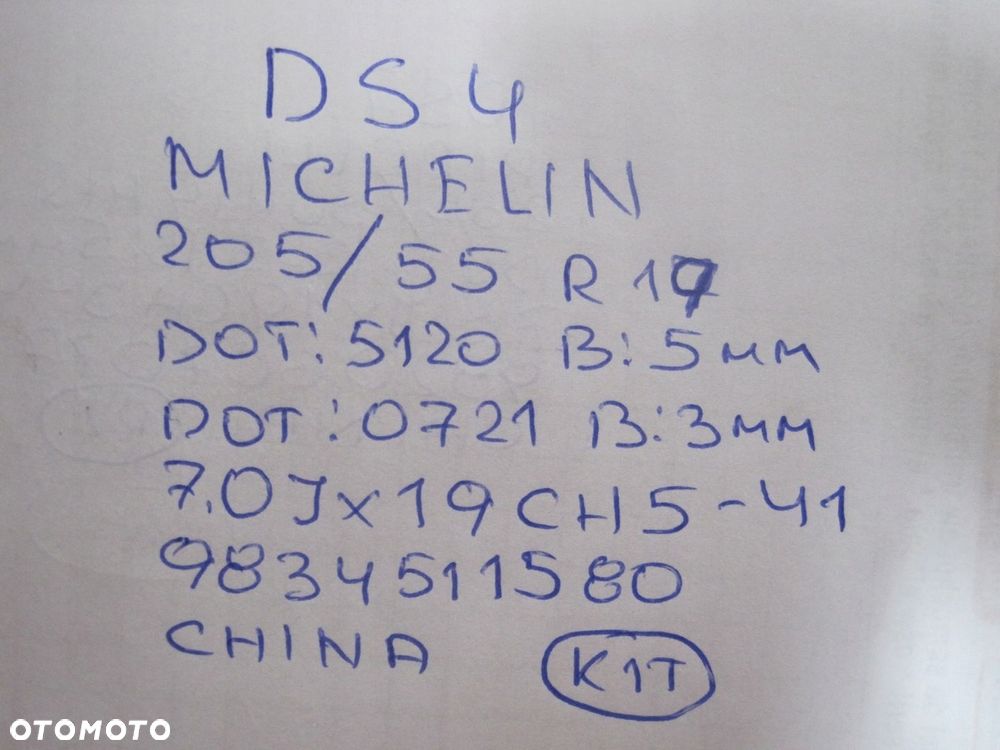 DS 4
MICHELIN
205/55 R 19
DOT: 5120 B: 5 мм
DOT: 0721 B: 3 мм
7.0Jx19 CH5-41
9834511580
CHINA K1T
OTOMOTO